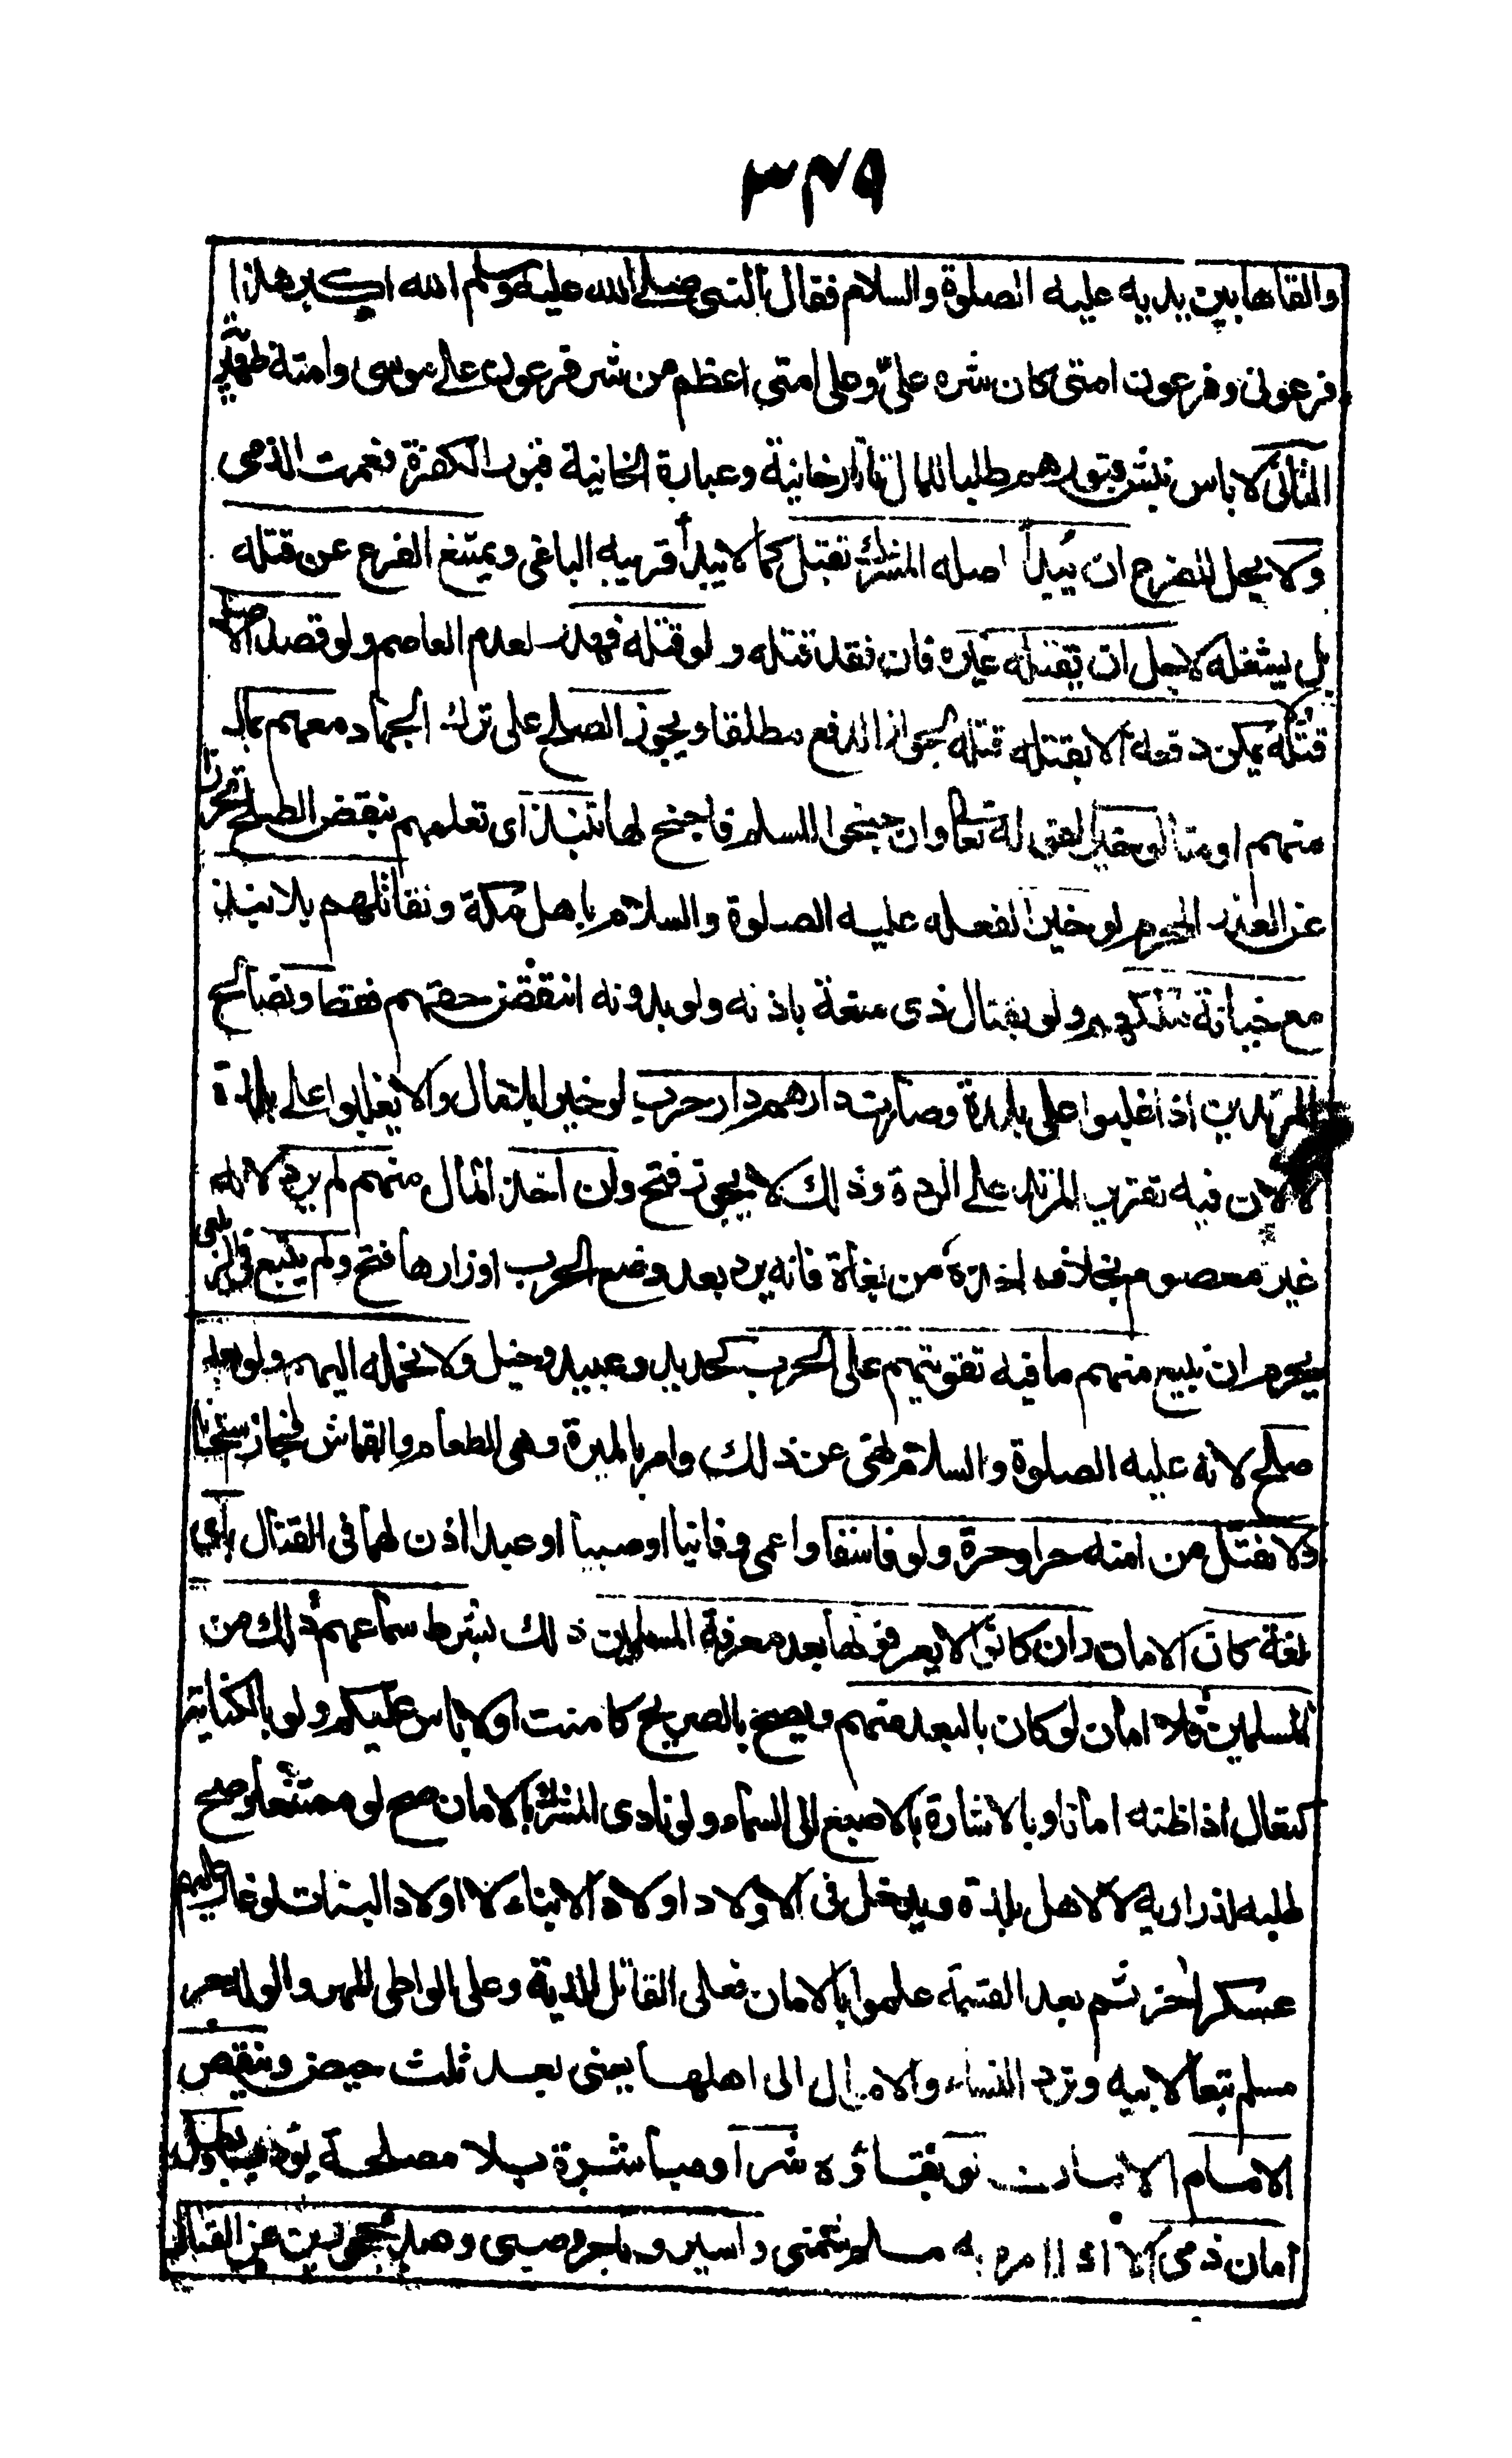 ٣٤٩
والقاها بين يديه عليه الصلوة والسلام فقال النبى صلى الله عليه وسلم الله اكبر هذا
فرعونى وفرعون امتى كان شره علىّ وعلى امتى اعظم من شر فرعون على موسى وامته ظهيرية
الثانى لا باس بنبش قبورهم طلبا للمال تاتارخانية وعبارة الخانية قبور الكفرة فعمت الذمى
ولا يحل للفرع ان يبدأ اصله المشرك بقتل كما لا يبدأ قريبه الباغى ويمتنع الفرع عن قتله
بل يشغله لاجل ان يقتله غيره فان فقد قتله ولو قتله فهدر لعدم العاصم ولو قصد الاصل
قتله ولا يمكن دفعه الا بقتله قتله لجواز الدفع مطلقا ويجوز الصلح على ترك الجهاد معهم بمال
منهم او منا لو خيرا لقوله تعالى وان جنحوا للسلم فاجنح لها وننبذ اى نعلمهم بنقض الصلح تحرزا
عن الغدر المحرم لو خيرا لفعله عليه الصلوة والسلام باهل مكة ونقاتلهم بلا نبذ
مع خيانة ملكهم ولو بقتال ذى منعة باذنه ولو بدونه انتقض حقهم فقط ونصالح
المرتدين اذا غلبوا على بلدة وصارت دارهم دار حرب لو خيرا بلا مال والا يغلبوا على بلدة
لا لان فيه تقرير المرتد على الردة وذلك لا يجوز فتح وان اخذ المال منهم لم يرد لانه
غير معصوم بخلاف اخذه من بغاة فانه يرد بعد وضع الحرب اوزارها فتح ولم يبع فى الزيلعى
يحرم ان يبيع منهم ما فيه تقويتهم على الحرب كحديد وعبيد وخيل ولا نحمله اليهم ولو بعد
صلح لانه عليه الصلوة والسلام نهى عن ذلك وامر بالميرة وهى الطعام والقماش فجاز استحسانا
ولا نقتل من امنه حر او حرة ولو فاسقا واعمى وفانيا او صبيا او عبدا اذن لهما فى القتال باى
لغة كان الامان وان كانوا لا يعرفونها بعد معرفة المسلمين ذلك بشرط سماعهم ذلك من
المسلمين فلا امان لو كان بالبعد منهم ويصح بالصريح كامنت او لا باس عليكم ولو بالكناية
كتعال اذا ظنه امانا وبالاشارة بالاصبع الى السماء ولو نادى المشرك بالامان صح لو ممتنعا وصح
طلبه لذراريه لا لاهل بلدة ويدخل فى الاولاد اولاد الابناء لا اولاد البنات لو غار عليهم
عسكر اخر ثم بعد القسمة علموا بالامان فعلى القاتل الدية وعلى الواطى المهر والولد حر
مسلم تبعا لابيه وترد النساء والاموال الى اهلها يعنى بعد ثلث حيض وينقض
الامام الامان لو بقاؤه شرا ومباشرة بلا مصلحة يؤدب وبطل
امان ذمى الا اذا امره به مسلم شمنى واسير وتاجر وصبى وعبد محجورين عن القتال